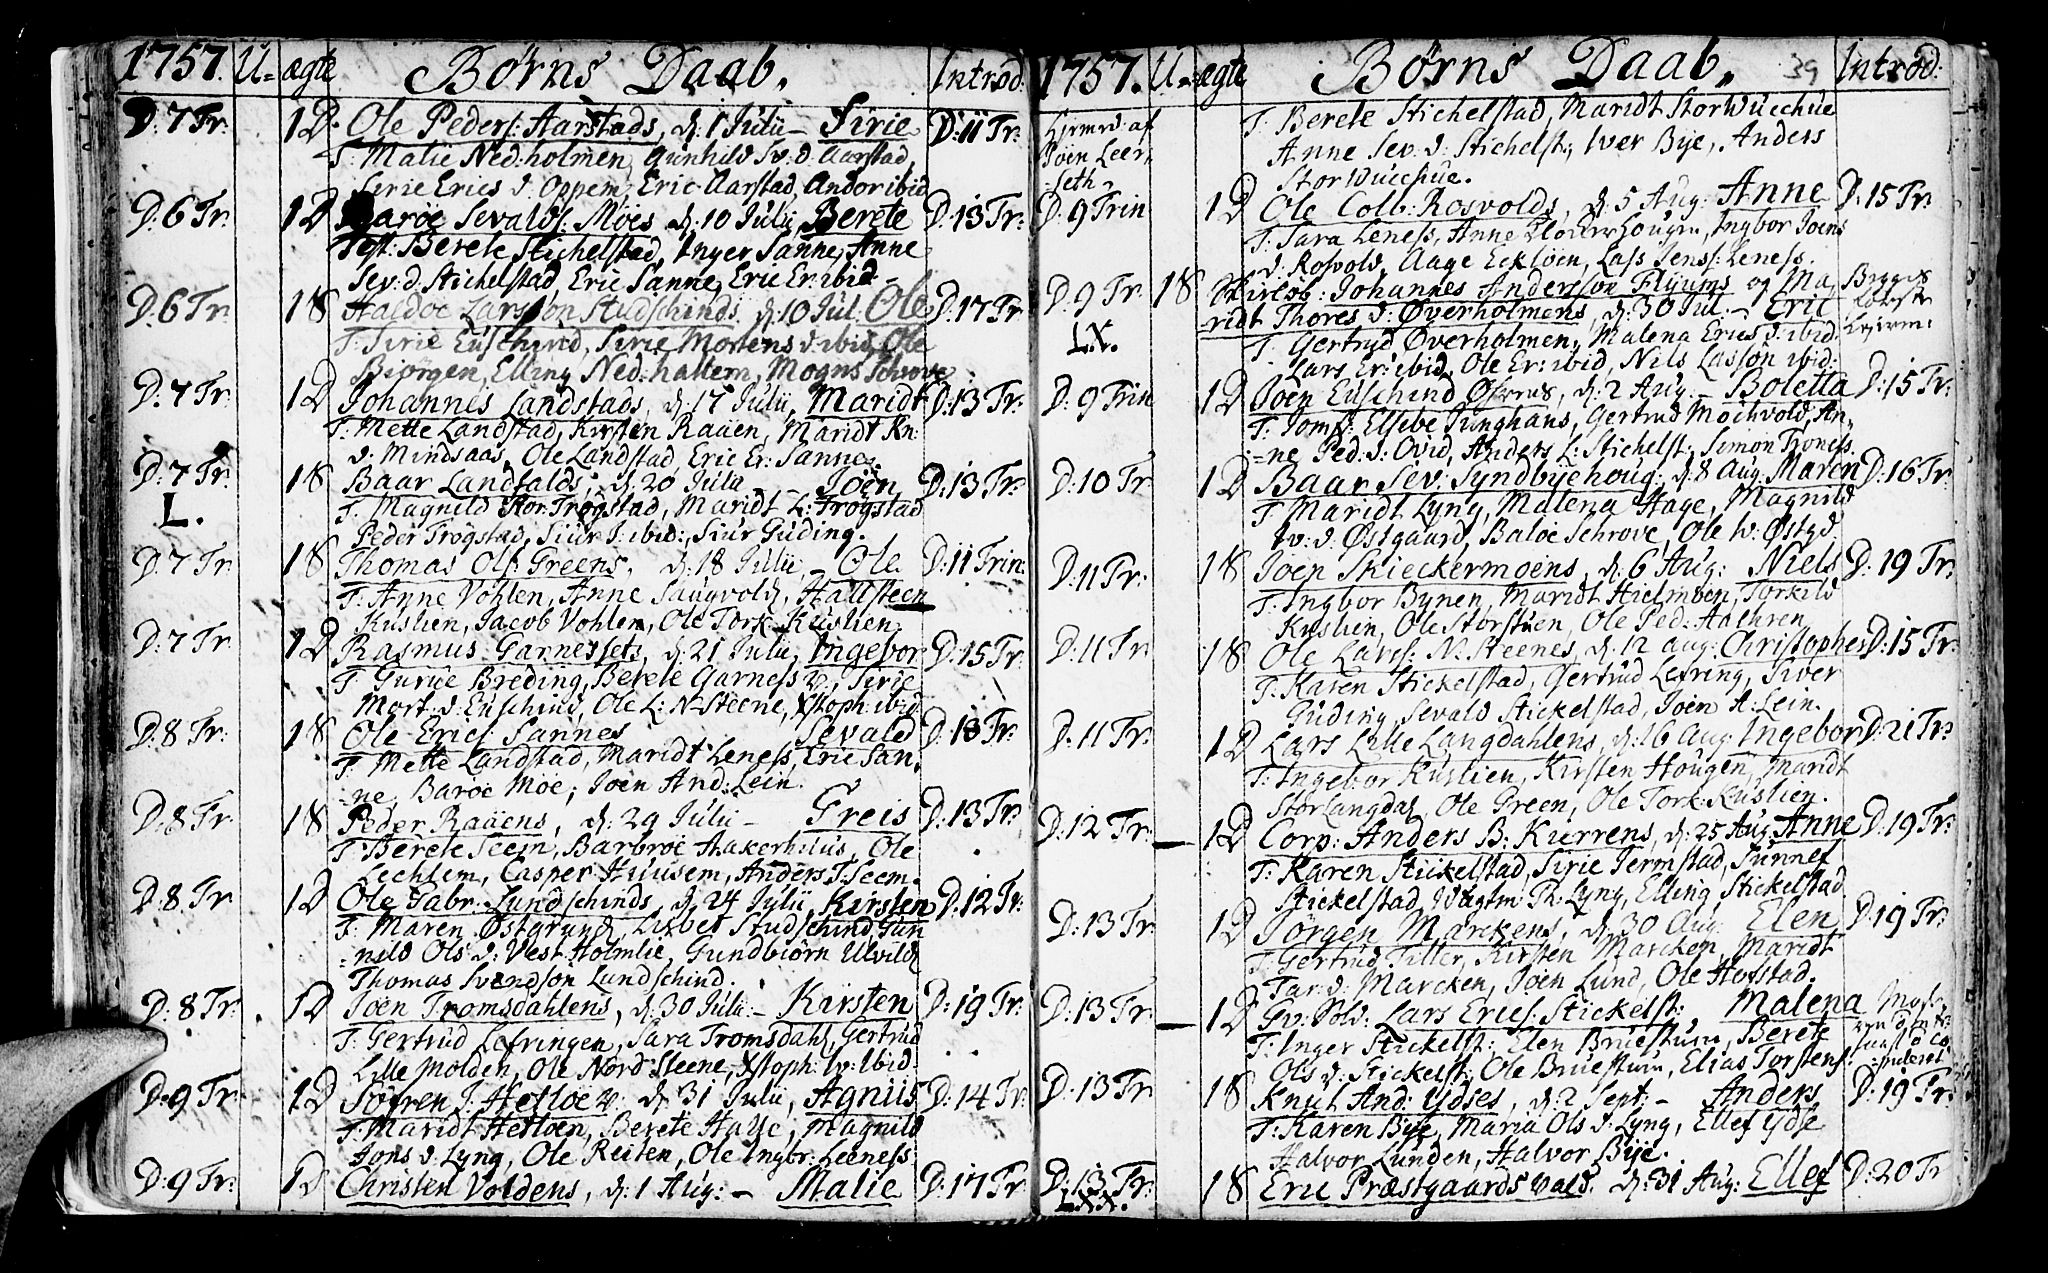 1757. U= ægte Børns Daab. Introd:
D: 7 Tr: 1 D. Ole Peders: Aarstads, d: 1 Julii – Sirie D: 11 Tr:
T: Malie Ned: holmen, Gunhild Sv: d. Aarstad,
Sirie Erics d. Oppem, Eric Aarstad, Andor ibid
D: 6 Tr: 1 D Baroe Sevalds: Möes d: 10 Julii, Berete D: 13 Tr:
Test: Berete Stichelstad, Inger Sanne, Anne
Sev: d. Stichelstad, Eric Sanne, Eric Er: ibid –
D: 6 Tr: 1 S Haldoe Larsson Studschinds d: 10 Jul: Ole D: 17 Tr
T: Sirie Euschind, Sirie Mortens d: ibid, Ole
Biörgen, Elling Ned: hallem, Mogns Schrove
D: 7 Tr: 1 D Johannes Landstads, d: 17 Julii, Maridt D: 13 Tr:
T: Mette Landstad, Kirsten Raüen, Maridt Kn:
d: Mindsaas, Ole Landstad, Eric Er: Sanne.
D: 7 Tr: 1 S Baar Landfalds; d: 20 Julii Joen D: 13 Tr:
L. T: Magnild Stor Trögstad, Maridt L: Trögstad
Peder Trögstad, Siur S: ibid:, Siur Guding.
D: 7 Tr: 1 S Thomas Ols: Greens, d: 18 Julii, – Ole. D: 11 Trin:
T: Anne Vohlen, Anne Saugvold, Hallsteen
Kuslien, Jacob Vohlen, Ole Tork: Kuslien.
D: 7 Tr: 1 D Rasmus Garnessets, d: 21 Julii, Ingebor D: 15 Tr:
T: Guruie Breding, Berete Garness v., Sirie
Mort: d: Euschind, Ole L: N Steene, Xstoph: ibid
D: 8 Tr: 1 S Ole Erics: Sannes Sevald D: 13 Tr:
T: Mette Landstad, Maridt Leness, Eric San,
=ne, Baroe Möe, Joen And: Lein.
D: 8 Tr 1 S Peder Raüens, d: 29 Julii – Greis D: 13 Tr:
T: Berete Seem, Barbroe Aakerhuus, Ole
Lechlem, Casper Huusem, Anders T: Seem.
D: 8 Tr 1 D Ole Gabr: Lundschinds, d: 24 Julii, Kirsten D: 12 Tr:
T: Maren Östgrund, Lisbet Studschind, Gun
=nild Ols: d: Vest Holmlie, Gundbiörn Ulvild
Thomas Svendson Lundschind.
D: 8 Tr: 1 D Joen Tromsdahlens, d: 30 Julii – Kirsten D: 19 Tr:
T: Gertrud Lefringen, Sara Tromsdahl, Gertrud
Lille Molden, Ole Nord Steene, Xstoph: Iv: ibid:
D: 9 Tr: 1 D Söfren J: Hetlöe v: d: 31 Julii, Agniis D: 14 Tr:
T: Maridt Hetloen, Berete Halle, Magnild
Jons d: Lyng, Ole Reiten, Ole Ingbr: Leeness
D: 9 Tr: 1 D Christen Voldens, d: 1 Aug: – Malie D: 17 Tr:
1757. U= ægte Børns Daab. 39 Introd:
af
Joen Leer,
seth
T: Berete Stichelstad, Maridt Stor Wucchue
Anne Sev: d: Stichelst:, Iver Bye, Anders
Stor Wucchue.
D: 9 Trin 1 D Ole Colb: Rosvolds, d: 5 Aug: Anne D: 15 Tr:
T: Sara Leness, Anne Klocker Hougen, Ingbor Joens
d: Rosvold, Aage Eckloen, Lass Jens: Leness.
D: 9 Tr: 1 S Johannes Andersson Flyums og Ma,
ridt Thores d: Øverholmens, d: 30 Jul. – Eric
LX. T: Gertrud Øverholmen, Malena Erics d: ibid:
Lars Er: ibid, Ole Er: ibid, Nils Lasson ibid:
Begges
Leierm:
D: 9 Trin 1 D Joen Euschind Öfrens, d: 2 Aug: – Boletta D: 15 Tr:
T: Jomf: Elsebe Junghans, Gertrud Moihvold, An,
=ne Ped: d: Ovid, Anders L: Stichelst: Simon Troness.
D: 10 Tr 1 D Baar Sev: Syndbyehoug: d: 8 Aug: Maren D: 16 Tr:
T: Maridt Lyng, Malena Hage, Magnild
Iv: d: Östgaard, Baloe Schrove, Ole W: Östgd.
D: 11 Tr: 1 S Joen Skieckermoens, d: 6 Aug: Niels D: 19 Tr:
T: Ingbor Bynen, Maridt Hielmöen, Torkild
Kuslien, Ole Storstuen, Ole Ped: Aahren.
D: 11 Tr 1 S Ole Lars: N. Steenes, d: 12 Aug: Christopher D: 15 Tr:
T: Karen Stickelstad, Gertrud Lefring, Siver
Guding, Sevald Stickelstad, Joen A: Lein.
D: 11 Tr: 1 D Lars Lille Langdahlens, d: 16 Aug: Ingebor D: 21 Tr:
T: Ingebor Kuslien, Kirsten Hougen, Maridt
Stor Langdal, Ole Green, Ole Tork: Kuslien.
D: 12 Tr: – 1 D Corp: Anders B: Kierrens, d: 25 Aug: Anne D: 19 Tr:
T: Karen Stickelstad, Sirie Jermstad, Sunnef
Stickelstad, Wagtm: Th: Lyng, Elling Stickelstad
D: 13 Tr: 1 D Jörgen Marckens, d: 30 Aug: Elen D: 19 Tr:
T: Gertrud Tiller, Kirsten Marcken, Maridt
Tar: d: Marcken, Joen Lund, Ole Hofstad.
D: 13 Tr: – 1 D Gv: Sold: Lars Erics: Stickelst: Malena
T: Inger Stickelst: Elen Bruestuu, Berete
Ols d: Stickelst:, Ole Bruestuu, Elias Torstens:
D: 13 Tr: 1 S Knut And: Ydses, d: 2 Sept: – Anders D: 19 Tr:
T: Karen Bye, Maria Ols d: Lyng, Ellef Ydse
Halvor Lunden, Halvor Bye.
D: 13 Tr: 1 S Eric Præstgaards vald. d: 31 Aug: Ellef D: 20 Tr
LXX.